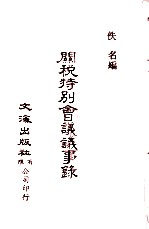 佚名編
關稅特別會議議事錄
文海出版社有限公司印行